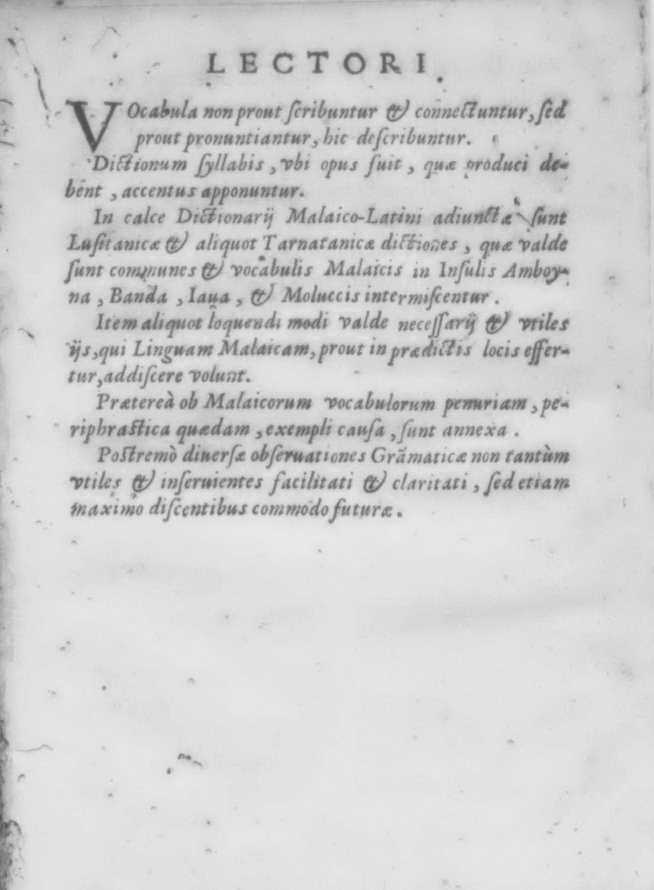 LECTORI.
VOcabula non prout ſcribuntur & connectuntur, ſed
prout pronuntiantur, hic deſcribuntur.
Dictionum ſyllabis, vbi opus fuit, quæ produci de-
bent, accentus apponuntur.
In calce Dictionarij Malaico-Latini adiunctæ ſunt
Luſitanicæ & aliquot Tarnatanicæ dictiones, quæ valde
ſunt communes & vocabulis Malaicis in Inſulis Amboy-
na, Banda, Iaua, & Moluccis intermiſcentur.
Item aliquot loquendi modi valde neceſſarij & vtiles
ijs, qui Linguam Malaicam, prout in prædictis locis effer-
tur, addiſcere volunt.
Prætereà ob Malaicorum vocabulorum penuriam, pe-
riphraſtica quædam, exempli cauſa, ſunt annexa.
Poſtremò diuerſæ obſeruationes Grãmaticæ non tantùm
vtiles & inſeruientes facilitati & claritati, ſed etiam
maximo diſcentibus commodo futuræ.